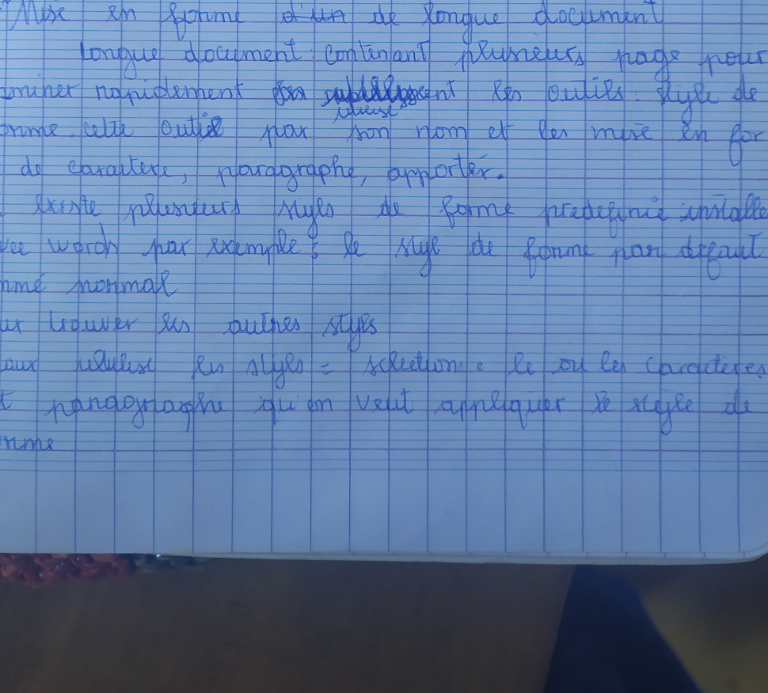 Mise en forme d'un de longue document
longue document continant plusieurs page pour
rapidement les outils style de
cette outil par son nom et les mise en for
de caractere, paragraphe, apporter.
existe plusieurs styles de forme predefinie installe
words par exemple : le style de forme par defaut
mmé normal
trouver les autres styls
les styles = selection : le ou les caracteres
paragraphe qu'on veut appliquer le style de
rme